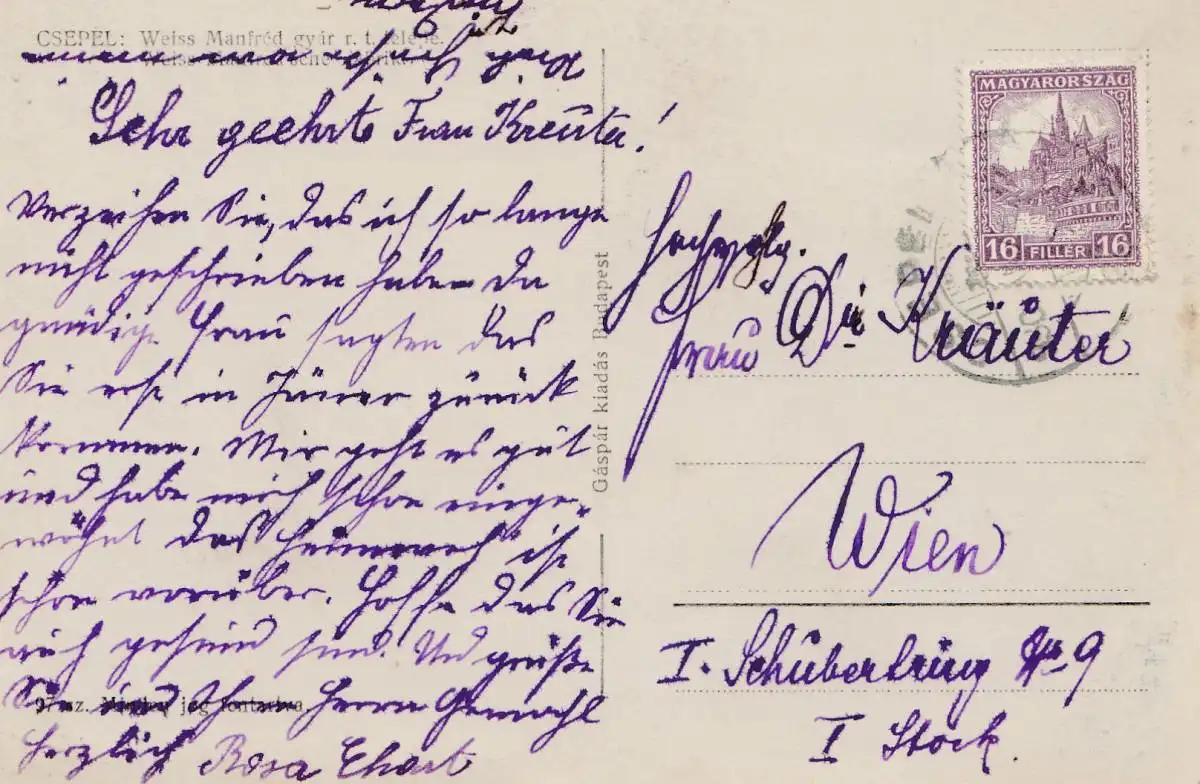 CSEPEL: Weiss Manfréd gyár r. t. telepe.
Sehr geehrte Frau Kreuter!
Verzeihen Sie, das ich so lange
nicht geschrieben habe. Da
gnädige Frau sagten das
Sie erst in Jänner zurück
kommen. Mir geht es gut
und habe mich schon einge-
wöhnt das Heimweh ist
schon vorüber. Hoffe das Sie
auch gesund sind. Und grüße
Sie und Ihren Herrn Gemahl
herzlich Rosa Ehart
Gáspár kiadás Budapest
MAGYARORSZÁG
16 FILLÉR 16
Frau Dr Kräuter
Wien
I. Schubertring Nr 9
I Stock.